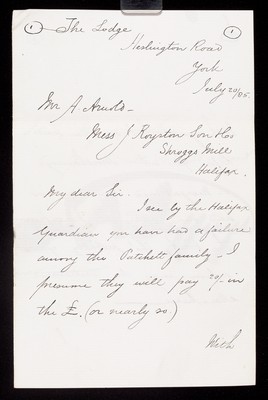 1 The Lodge 1
Heslington Road
York
July 20/85.
Mr A. Arnold -
Mess J Royston Son & Co
Shroggs Mill
Halifax.
My dear Sir.
I see by the Halifax
Guardian you have had a failure
among the Patchett family - I
presume they will pay 20/- in
the £. (or nearly so)
With